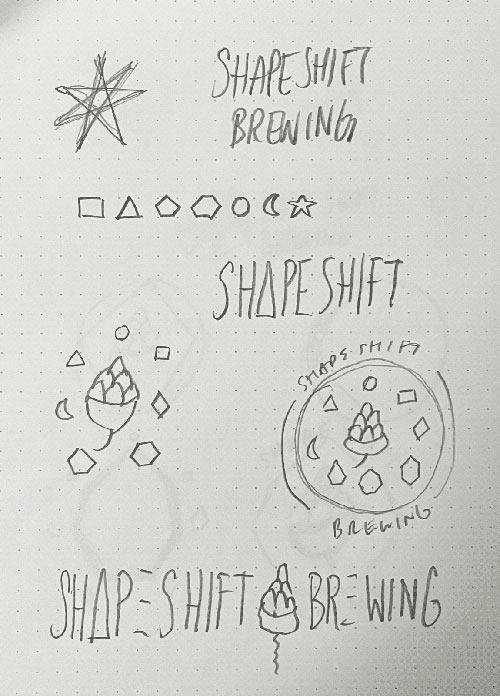 SHAPE SHIFT
BREWING
SHAPE SHIFT
SHAPE SHIFT
BREWING
SHAPE SHIFT BREWING